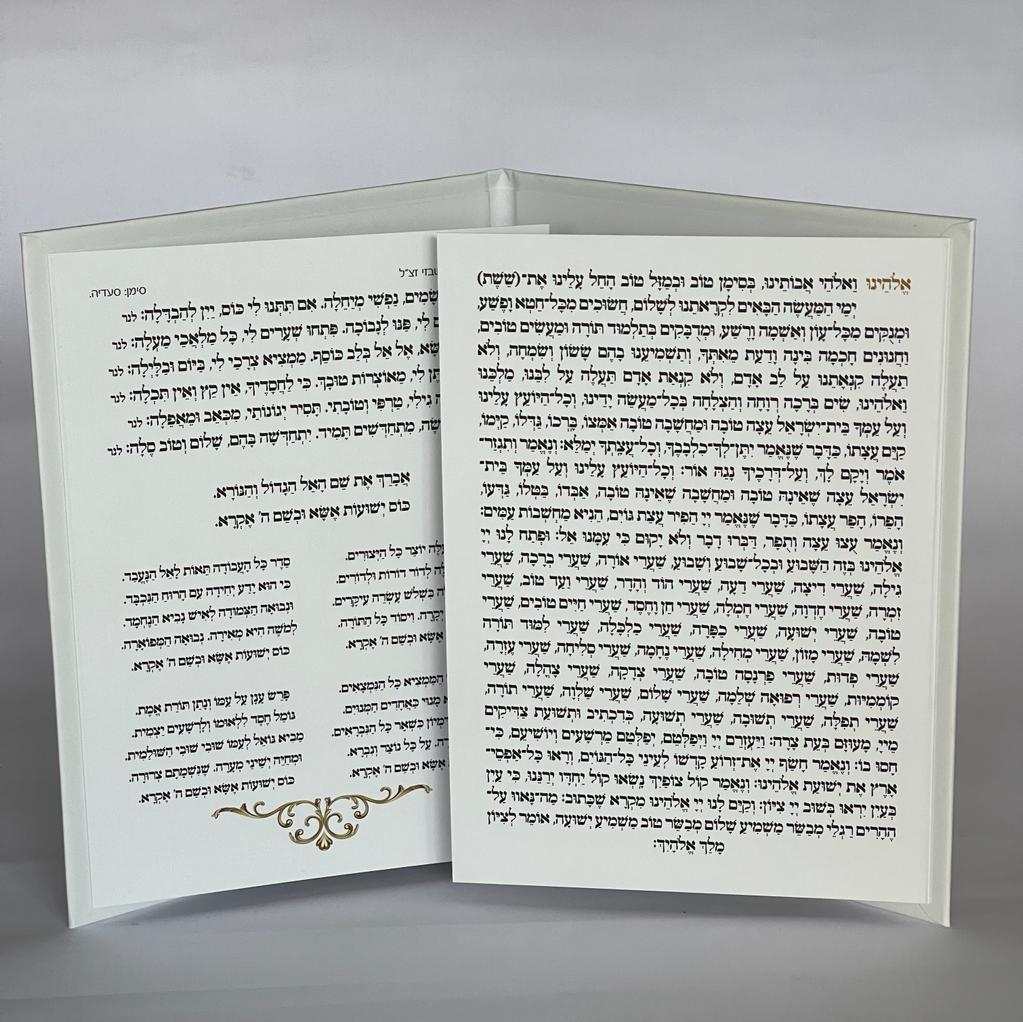 אֱלֹהֵינוּ וֵאלֹהֵי אֲבוֹתֵינוּ, בְּסִימָן טוֹב וּבְמַזָּל טוֹב הָחֵל עָלֵינוּ אֶת־(שֵׁשֶׁת)
יְמֵי הַמַּעֲשֶׂה הַבָּאִים לִקְרָאתֵנוּ לְשָׁלוֹם, חֲשׂוּכִים מִכָּל־חֵטְא וָפֶשַׁע,
וּמְנֻקִּים מִכָּל־עָוֹן וְאַשְׁמָה וָרֶשַׁע, וּמְדֻבָּקִים בְּתַלְמוּד תּוֹרָה וּמַעֲשִׂים טוֹבִים,
וַחֲנוּנִים חָכְמָה בִּינָה וָדַעַת מֵאִתָּךְ, וְתַשְׁמִיעֵנוּ בָהֶם שָׂשׂוֹן וְשִׂמְחָה, וְלֹא
תַעֲלֶה קִנְאָתֵנוּ עַל לֵב אָדָם, וְלֹא קִנְאַת אָדָם תַּעֲלֶה עַל לִבֵּנוּ, מַלְכֵּנוּ
וֵאלֹהֵינוּ, שִׂים בְּרָכָה רְוָחָה וְהַצְלָחָה בְּכָל־מַעֲשֵׂה יָדֵינוּ, וְכָל־הַיּוֹעֵץ עָלֵינוּ
וְעַל עַמְּךָ בֵּית־יִשְׂרָאֵל עֵצָה טוֹבָה וּמַחֲשָׁבָה טוֹבָה אַמְּצוֹ, בָּרְכוֹ, גַּדְּלוֹ, קַיְּמוֹ,
קַיֵּם עֲצָתוֹ, כַּדָּבָר שֶׁנֶּאֱמַר יִתֶּן־לְךָ כִלְבָבֶךָ, וְכָל־עֲצָתְךָ יְמַלֵּא: וְנֶאֱמַר וְתִגְזַר־
אֹמֶר וְיָקָם לָךְ, וְעַל־דְּרָכֶיךָ נָגַהּ אוֹר: וְכָל־הַיּוֹעֵץ עָלֵינוּ וְעַל עַמְּךָ בֵּית־
יִשְׂרָאֵל עֵצָה שֶׁאֵינָהּ טוֹבָה וּמַחֲשָׁבָה שֶׁאֵינָהּ טוֹבָה, אַבְּדוֹ, בַּטְּלוֹ, גַּדְּעוֹ,
הֲפֵרוֹ, הָפֵר עֲצָתוֹ, כַּדָּבָר שֶׁנֶּאֱמַר יְיָ הֵפִיר עֲצַת גּוֹיִם, הֵנִיא מַחְשְׁבוֹת עַמִּים:
וְנֶאֱמַר עֻצוּ עֵצָה וְתֻפָר, דַּבְּרוּ דָבָר וְלֹא יָקוּם כִּי עִמָּנוּ אֵל: וּפְתַח לָנוּ יְיָ
אֱלֹהֵינוּ בְּזֶה הַשָּׁבוּעַ וּבְכָל־שָׁבוּעַ וְשָׁבוּעַ, שַׁעֲרֵי אוֹרָה, שַׁעֲרֵי בְרָכָה, שַׁעֲרֵי
גִילָה, שַׁעֲרֵי דִיצָה, שַׁעֲרֵי דֵעָה, שַׁעֲרֵי הוֹד וְהָדָר, שַׁעֲרֵי וַעַד טוֹב, שַׁעֲרֵי
זִמְרָה, שַׁעֲרֵי חֶדְוָה, שַׁעֲרֵי חֶמְלָה, שַׁעֲרֵי חֵן וָחֶסֶד, שַׁעֲרֵי חַיִּים טוֹבִים, שַׁעֲרֵי
טוֹבָה, שַׁעֲרֵי יְשׁוּעָה, שַׁעֲרֵי כַפָּרָה, שַׁעֲרֵי כַלְכָּלָה, שַׁעֲרֵי לִמּוּד תּוֹרָה
לִשְׁמָהּ, שַׁעֲרֵי מָזוֹן, שַׁעֲרֵי מְחִילָה, שַׁעֲרֵי נֶחָמָה, שַׁעֲרֵי סְלִיחָה, שַׁעֲרֵי עֶזְרָה,
שַׁעֲרֵי פְדוּת, שַׁעֲרֵי פַרְנָסָה טוֹבָה, שַׁעֲרֵי צְדָקָה, שַׁעֲרֵי צָהֳלָה, שַׁעֲרֵי
קוֹמְמִיּוּת, שַׁעֲרֵי רְפוּאָה שְׁלֵמָה, שַׁעֲרֵי שָׁלוֹם, שַׁעֲרֵי שַׁלְוָה, שַׁעֲרֵי תוֹרָה,
שַׁעֲרֵי תְפִלָּה, שַׁעֲרֵי תְשׁוּבָה, שַׁעֲרֵי תְשׁוּעָה, כְּדִכְתִיב וּתְשׁוּעַת צַדִּיקִים
מֵיְיָ, מָעוּזָּם בְּעֵת צָרָה: וַיַּעְזְרֵם יְיָ וַיְפַלְּטֵם, יְפַלְּטֵם מֵרְשָׁעִים וְיוֹשִׁיעֵם, כִּי־
חָסוּ בוֹ: וְנֶאֱמַר חָשַׂף יְיָ אֶת־זְרוֹעַ קָדְשׁוֹ לְעֵינֵי כָּל־הַגּוֹיִם, וְרָאוּ כָּל־אַפְסֵי־
אָרֶץ אֵת יְשׁוּעַת אֱלֹהֵינוּ: וְנֶאֱמַר קוֹל צוֹפַיִךְ נָשְׂאוּ קוֹל יַחְדָּו יְרַנֵּנוּ, כִּי עַיִן
בְּעַיִן יִרְאוּ בְּשׁוּב יְיָ צִיּוֹן: וְקַיֵּם לָנוּ יְיָ אֱלֹהֵינוּ מִקְרָא שֶׁכָּתוּב: מַה־נָּאווּ עַל־
הֶהָרִים רַגְלֵי מְבַשֵּׂר מַשְׁמִיעַ שָׁלוֹם מְבַשֵּׂר טוֹב מַשְׁמִיעַ יְשׁוּעָה, אוֹמֵר לְצִיּוֹן
מָלַךְ אֱלֹהָיִךְ:
שבזי זצ"ל
סימן: סעדיה.
נַפְשִׁי מְיַחֲלָה. אִם תִּתְּנוּ לִי כּוֹס, יַיִן לְהַבְדָּלָה: לנר
לִי, פַּנּוּ לִנְבוֹכָה. פִּתְחוּ שְׁעָרִים לִי, כָּל מַלְאֲכֵי מַעְלָה: לנר
אֶל אֵל בְּלֵב כּוֹסֵף. מַמְצִיא צְרָכַי לִי, בַּיּוֹם וּבַלַּיְלָה: לנר
לִי, מֵאוֹצְרוֹת טוּבָךְ. כִּי לַחֲסָדֶיךָ, אֵין קֵץ וְאֵין תִּכְלָה: לנר
גִילִי, טַרְפִּי וְטוֹבָתִי. תָּסִיר יְגוֹנוֹתַי, מִכְּאֵב וּמַאֲפֵלָה: לנר
מִתְחַדְּשִׁים תָּמִיד. יִתְחַדְּשָׁה בָּהֶם, שָׁלוֹם וְטוֹב סֶלָה: לנר
אֲבָרֵךְ אֶת שֵׁם הָאֵל הַגָּדוֹל וְהַנּוֹרָא.
כּוֹס יְשׁוּעוֹת אֶשָּׂא וּבְשֵׁם ה' אֶקְרָא.
יוֹצֵר כָּל הַיְצוּרִים.
לְדוֹר דּוֹרוֹת וּלְדוֹרִים.
בִּשְׁלֹשׁ עֶשְׂרֵה עִיקָרִים.
וִיסוֹד כָּל הַתּוֹרָה.
אֶשָּׂא וּבְשֵׁם ה' אֶקְרָא.
סֵדֶר כָּל הָעֲבוֹדָה תֵּאוֹת לָאֵל הַנֶּעֱבָד.
כִּי הוּא יָדַע יְחִידָה עִם הָרוּחַ הַנִּכְבָּד.
וּנְבוּאָה הַצְּמוּדָה לְאִישׁ נָבִיא הַנֶּחְמָד.
לְמֹשֶׁה הִיא מְאִירָה. נְבוּאָה הַמְפוֹאָרָה.
כּוֹס יְשׁוּעוֹת אֶשָּׂא וּבְשֵׁם ה' אֶקְרָא.
הַמַּמְצִיא כָּל הַנִּמְצָאִים.
מָנוּי כַּאֲחָדִים הַמְּנוּיִם.
כִּשְׁאָר כָּל הַנִּבְרָאִים.
עַל כָּל נוֹצָר וְנִבְרָא.
אֶשָּׂא וּבְשֵׁם ה' אֶקְרָא.
פָּרַשׂ עָנָן עַל עַמּוֹ וְנָתַן תּוֹרַת אֱמֶת.
גּוֹמֵל חֶסֶד לִלְאוּמוֹ וְלָרְשָׁעִים יַצְמִית.
מֵבִיא גוֹאֵל לְעַמּוֹ שׁוּבִי שׁוּבִי הַשּׁוּלַמִּית.
וּמְחַיֶּה יְשֵׁינֵי מְעָרָה. שֶׁנִּשְׁמָתָם צְרוּרָה.
כּוֹס יְשׁוּעוֹת אֶשָּׂא וּבְשֵׁם ה' אֶקְרָא.